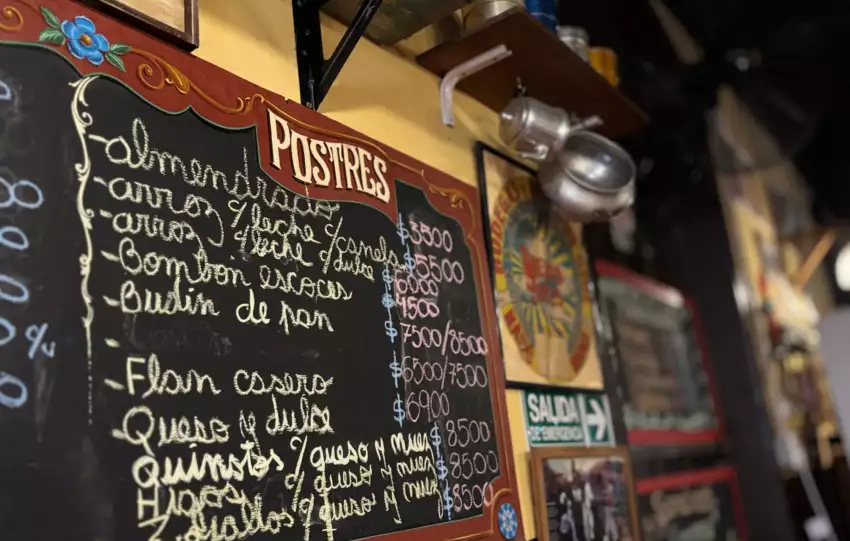 POSTRES
-almendrado $3500
-arros c/leche c/canela $5500
-arros c/leche c/dulce $6000
-Bombon escoces $4500
-Budin de pan $7500/8500
-Flan casero $6500/7000
-Queso y dulce $6900
Quinotos c/queso y nuez $8500
Higos c/queso y nuez $8500
c/queso y nuez $8500
SALIDA
DE EMERGENCIA
%